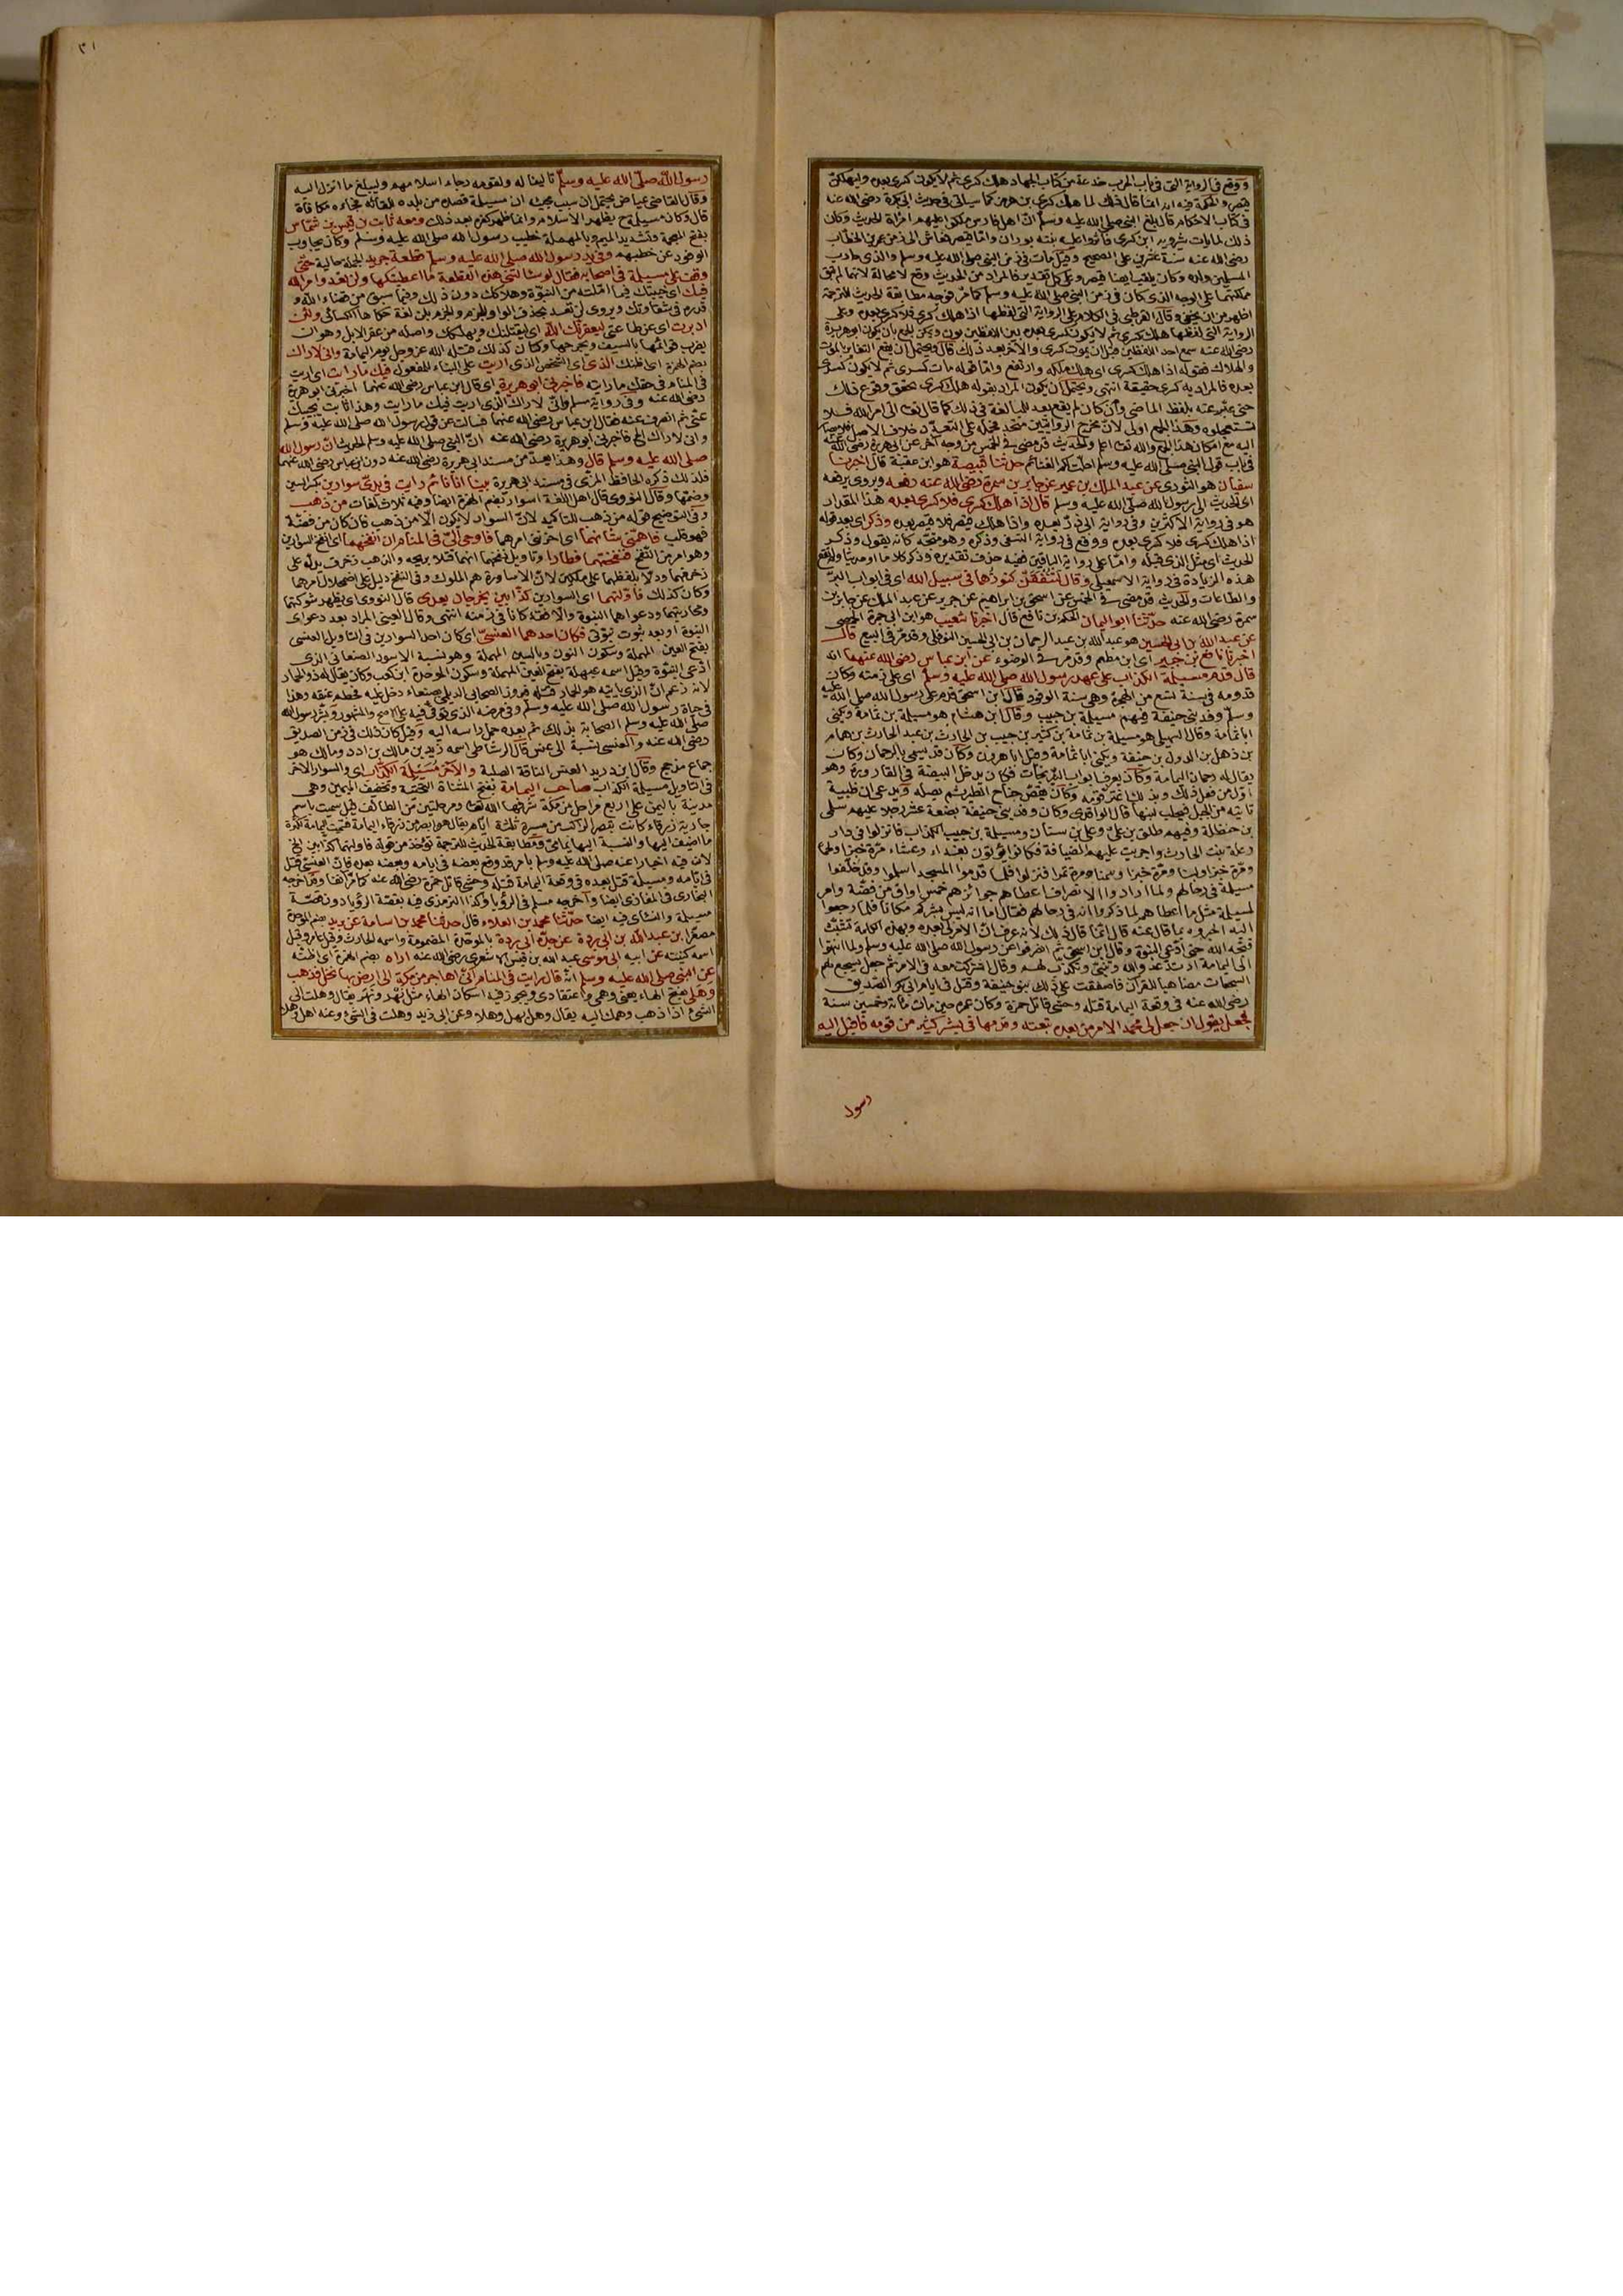 ووقع في الرواية التي في باب الحرب خدعة من كتاب الجهاد هلك كسرى ثم لا يكون كسرى بعده وليهلكن
قيصر والحكمة فيه انه انما قال ذلك لما هلك كسرى بن هرمز كما سيأتي في حديث ابي بكرة رضي الله عنه
في كتاب الاحكام قال بلغ النبي صلى الله عليه وسلم ان اهل فارس ملكوا عليهم امراة الحديث وكان
ذلك لما مات شيرويه ابن كسرى فامروا عليهم بنته بوران واما قيصر فعاش الى زمن عمر بن الخطاب
رضي الله عنه سنة عشرين على الصحيح وقيل مات في زمن النبي صلى الله عليه وسلم والذي حارب
المسلمين ولده وكان يلقب ايضا قيصر وعلى كل تقدير فالمراد من الحديث وقع لا محالة لانهما لم تبق
مملكتهما على الوجه الذي كان في زمن النبي صلى الله عليه وسلم كما مر فوجه مطابقة الحديث للترجمة
اظهر من ان يخفى وقال القرطبي في الكلام على الرواية التي لفظها اذا هلك كسرى فلا كسرى بعده وعلى
الرواية التي لفظها هلك كسرى ثم لا يكون كسرى بعده بين اللفظين بون ويمكن الجمع بان يكون ابو هريرة
رضي الله عنه سمع احد اللفظين قبل ان يموت كسرى والآخر بعد ذلك قال ويحتمل ان يقع التغاير بالموت
والهلاك فقوله اذا هلك كسرى اي هلك ملكه وارتفع واما قوله مات كسرى ثم لا يكون كسرى
بعده فالمراد به كسرى حقيقة انتهى ويحتمل ان يكون المراد بقوله هلك كسرى تحقق وقوع ذلك
حتى عبر عنه بلفظ الماضي وان كان لم يقع بعد للمبالغة في ذلك كما قال تعالى اتى امر الله فلا
تستعجلوه وهذا الجمع اولى لان مخرج الروايتين متحد فحمله على التعدد خلاف الاصل فلا يصار
اليه مع امكان هذا الجمع والله تعالى اعلم والحديث قد مضى في الخمس من وجه آخر عن ابي هريرة رضي الله عنه
في باب قول النبي صلى الله عليه وسلم احلت لكم الغنائم حدثنا قبيصة هو ابن عقبة قال اخبرنا
سفيان هو الثوري عن عبد الملك بن عمير عن جابر بن سمرة رضي الله عنه رفعه ويروى يرفعه
اي الحديث الى رسول الله صلى الله عليه وسلم قال اذا هلك كسرى فلا كسرى بعده هذا المقدار
هو في رواية الاكثرين وفي رواية ابي ذر بعده واذا هلك قيصر فلا قيصر بعده وذكر اي بعد قوله
اذا هلك كسرى فلا كسرى بعده ووقع في رواية النسفي وذكره وهو متجه كانه يقول وذكر
الحديث اي مثل الذي قبله واما على رواية الباقين ففيه حذف تقديره وذكر كلاما او حديثا ولم تقع
هذه الزيادة في رواية الاسمعيلي وقال لتنفقن كنوزهما في سبيل الله اي في ابواب البر
والطاعات والحديث قد مضى في الخمس عن اسحق بن ابراهيم عن جرير عن عبد الملك عن جابر بن
سمرة رضي الله عنه حدثنا ابو اليمان الحكم بن نافع قال اخبرنا شعيب هو ابن ابي حمزة الحمصي
عن عبد الله بن ابي الحسين هو عبد الله بن عبد الرحمان بن ابي الحسين النوفلي وقد مر في البيع قال
اخبرنا نافع بن جبير اي ابن مطعم وقد مر في الوضوء عن ابن عباس رضي الله عنهما انه
قال قدم مسيلمة الكذاب على عهد رسول الله صلى الله عليه وسلم اي على زمنه وكان
قدومه في سنة تسع من الهجرة وهي سنة الوفود قال ابن اسحق قدم على رسول الله صلى الله عليه
وسلم وفد بني حنيفة فيهم مسيلمة بن حبيب وقال ابن هشام هو مسيلمة بن ثمامة ويكنى
ابا ثمامة وقال السهيلي هو مسيلمة بن ثمامة بن كثير بن حبيب بن الحارث بن عبد الحارث بن همام
بن ذهل بن الدول بن حنيفة ويكنى ابا ثمامة وقيل ابا هرون وكان قد يسمى بالرحمان وكان
يقال له رحمان اليمامة وكان يعرف ابوابا من النيرنجات فكان يدخل البيضة في القارورة وهو
اول من فعل ذلك وبذلك اغتر قومه وكان يقص جناح الطير ثم يصله ويدعي ان ظبية
تاتيه من الجبل فيحلب لبنها قال الواقدي وكان وفد بني حنيفة بضعة عشر رجلا عليهم سلمى
بن حنظلة وفيهم طلق بن علي وعلي بن سنان ومسيلمة بن حبيب الكذاب فانزلوا في دار
رملة بنت الحارث واجريت عليهم الضيافة فكانوا يؤتون بغداء وعشاء مرة خبزا ولحما
ومرة خبزا ولبنا ومرة خبزا وسمنا ومرة تمرا فنزلوا فلما قدموا المسجد اسلموا وقد خلفوا
مسيلمة في رحالهم ولما ارادوا الانصراف اعطاهم جوائزهم خمس اواق من فضة وامر
لمسيلمة مثل ما اعطاهم لما ذكروا انه في رحالهم فقال اما انه ليس بشركم مكانا فلما رجعوا
اليه اخبروه بما قال عنه قال انما قال ذلك لانه عرف ان الامر لي بعده وبهذه الكلمة تشبث
قبحه الله حتى ادعى النبوة وقال ابن اسحق ثم انصرفوا عن رسول الله صلى الله عليه وسلم ولما انتهوا
الى اليمامة ارتد عدو الله وتنبى وتكذب لهم وقال اشركت معه في الامر ثم جعل يسجع لهم
السجعات مضاهيا للقرآن فاصفقت على ذلك بنو حنيفة وقتل في ايام ابي بكر الصديق
رضي الله عنه في وقعة اليمامة قتله وحشي قاتل حمزة وكان عمره حين مات مائة وخمسين سنة
فجعل يقول ان جعل لي محمد الامر من بعده تبعته وقدمها في بشر كثير من قومه فاقبل اليه
رسول
٣١
رسول الله صلى الله عليه وسلم تاليفا له ولقومه رجاء اسلامهم وليبلغ ما انزل اليه
وقال القاضي عياض يحتمل ان سبب مجيئه اليه ان مسيلمة قصده من بلده للقائه فجاءه مكافأة
قال وكان مسيلمة ح يظهر الاسلام وانما ظهر كفره بعد ذلك ومعه ثابت بن قيس بن شماس
بفتح المعجمة وتشديد الميم وبالمهملة خطيب رسول الله صلى الله عليه وسلم وكان يجاوب
الوفود عن خطبهم وفي يد رسول الله صلى الله عليه وسلم قطعة جريد الجملة حالية حتى
وقف على مسيلمة في اصحابه فقال لو سألتني هذه القطعة ما اعطيتكها ولن تعدو امر الله
فيك اي خيبتك فيما املته من النبوة وهلاكك دون ذلك وفيما سبق من قضاء الله و
قدره في شقاوتك ويروى لن تعد بحذف الواو للجزم والجزم بلن لغة حكاها الكسائي ولئن
ادبرت اي عن طاعتي ليعقرنك الله اي ليقتلنك ويهلكك واصله من عقر الابل وهو ان
يضرب قوائمها بالسيف ويجرحها وكان كذلك قتله الله عز وجل يوم اليمامة واني لاراك
بضم الهمزة اي لاظنك الذي اي الشخص الذي اريت على البناء للمفعول فيك ما رايت اي اريت
في المنام في حقك ما رايته فاخبرني ابو هريرة اي قال ابن عباس رضي الله عنهما اخبرني ابو هريرة
رضي الله عنه وفي رواية مسلم واني لاراك الذي اريت فيك ما رايت وهذا ثابت يجيبك
عني ثم انصرف عنه فقال ابن عباس رضي الله عنهما فسالت عن قول رسول الله صلى الله عليه وسلم
واني لاراك الخ فاخبرني ابو هريرة رضي الله عنه ان النبي صلى الله عليه وسلم الحديث ان رسول الله
صلى الله عليه وسلم قال وهذا يعد من مسند ابي هريرة رضي الله عنه دون ابن عباس رضي الله عنهما
فلذلك ذكره الحافظ المزي في مسند ابي هريرة بينا انا نائم رايت في يدي سوارين بكسر السين
وضمها وقال النووي قال اهل اللغة اسوار بضم الهمزة ايضا وفيه ثلاث لغات من ذهب
وفي التوضيح قوله من ذهب للتاكيد لان السوار لا يكون الا من ذهب فان كان من فضة
فهو قلب فاهمني شانهما اي احزنني امرهما فاوحي الي في المنام ان انفخهما اي انفخ السوارين
وهو امر من النفخ فنفختهما فطارا وتاويل نفخهما انهما قتلا بريحه والذهب زخرف يدل على
زخرفهما ودلا بلفظهما على ملكين لان الاساورة هم الملوك وفي النفخ دليل على اضمحلال امرهما
وكان كذلك فاولتهما اي السوارين كذابين يخرجان بعدي قال النووي اي يظهر شوكتهما
ومحاربتهما ودعواهما النبوة والا فقد كانا في زمنه انتهى وقال العيني المراد بعد دعواي
النبوة او بعد ثبوت نبوتي فكان احدهما العنسي اي كان احد السوارين في التاويل العنسي
بفتح العين المهملة وسكون النون وبالسين المهملة وهو نسبة الاسود الصنعاني الذي
ادعى النبوة وقيل اسمه عبهلة بفتح العين المهملة وسكون الموحدة ابن كعب وكان يقال له ذو الخمار
لانه زعم ان الذي ياتيه هو الخمار قتله فيروز الصحابي الديلمي بصنعاء دخل عليه فحطم عنقه وهذا
في حياة رسول الله صلى الله عليه وسلم وفي مرضه الذي توفي فيه على الاصح والمشهور وبشر رسول الله
صلى الله عليه وسلم الصحابة بذلك ثم بعده حمل راسه اليه وقيل كان ذلك في زمن الصديق
رضي الله عنه والعنسي نسبة الى عنس قال الرشاطي اسمه زيد بن مالك بن ادد ومالك هو
جماع مذحج وقال ابن دريد العنس الناقة الصلبة والآخر مسيلمة الكذاب اي والسوار الآخر
في التاويل مسيلمة الكذاب صاحب اليمامة بفتح المثناة التحتية وتخفيف الميمين وهي
مدينة باليمن على اربع مراحل من مكة شرفها الله تعالى ومرحلتين من الطائف قيل سميت باسم
جارية زرقاء كانت تبصر الراكب من مسيرة ثلثة ايام يقال هو ابصر من زرقاء اليمامة فسميت اليمامة لكثرة
ما اضيف اليها والنسبة اليها يمامي ومطابقة الحديث للترجمة تؤخذ من قوله فاولتهما كذابين الخ
لان فيه اخبارا عنه صلى الله عليه وسلم بامر قد وقع بعضه في ايامه وبعضه بعده فان العنسي قتل
في ايامه ومسيلمة قتل بعده في وقعة اليمامة قتله وحشي قاتل حمزة رضي الله عنه كما مر آنفا وقد اخرجه
البخاري في المغازي ايضا واخرجه مسلم في الرؤيا وكذا الترمذي فيه بقصة الرؤيا دون قصة
مسيلمة والنسائي فيه ايضا حدثنا محمد بن العلاء قال حدثنا محمد بن اسامة عن بريد بضم الموحدة
مصغرا بن عبد الله بن ابي بردة عن جده ابي بردة بالموحدة المضمومة واسمه الحارث وقيل عامر وقيل
اسمه كنيته عن ابيه ابي موسى عبد الله بن قيس الاشعري رضي الله عنه اراه بضم الهمزة اي اظنه
عن النبي صلى الله عليه وسلم انه قال رايت في المنام اني اهاجر من مكة الى ارض بها نخل فذهب
وهلي بفتح الهاء يعني وهمي واعتقادي ويجوز فيه اسكان الهاء مثل نهر ونهر يقال وهلت الى
الشيء اذا ذهب وهمك اليه يقال وهل يهل وهلا وعن ابي زيد وهلت في الشيء وعنه اهل وهلا